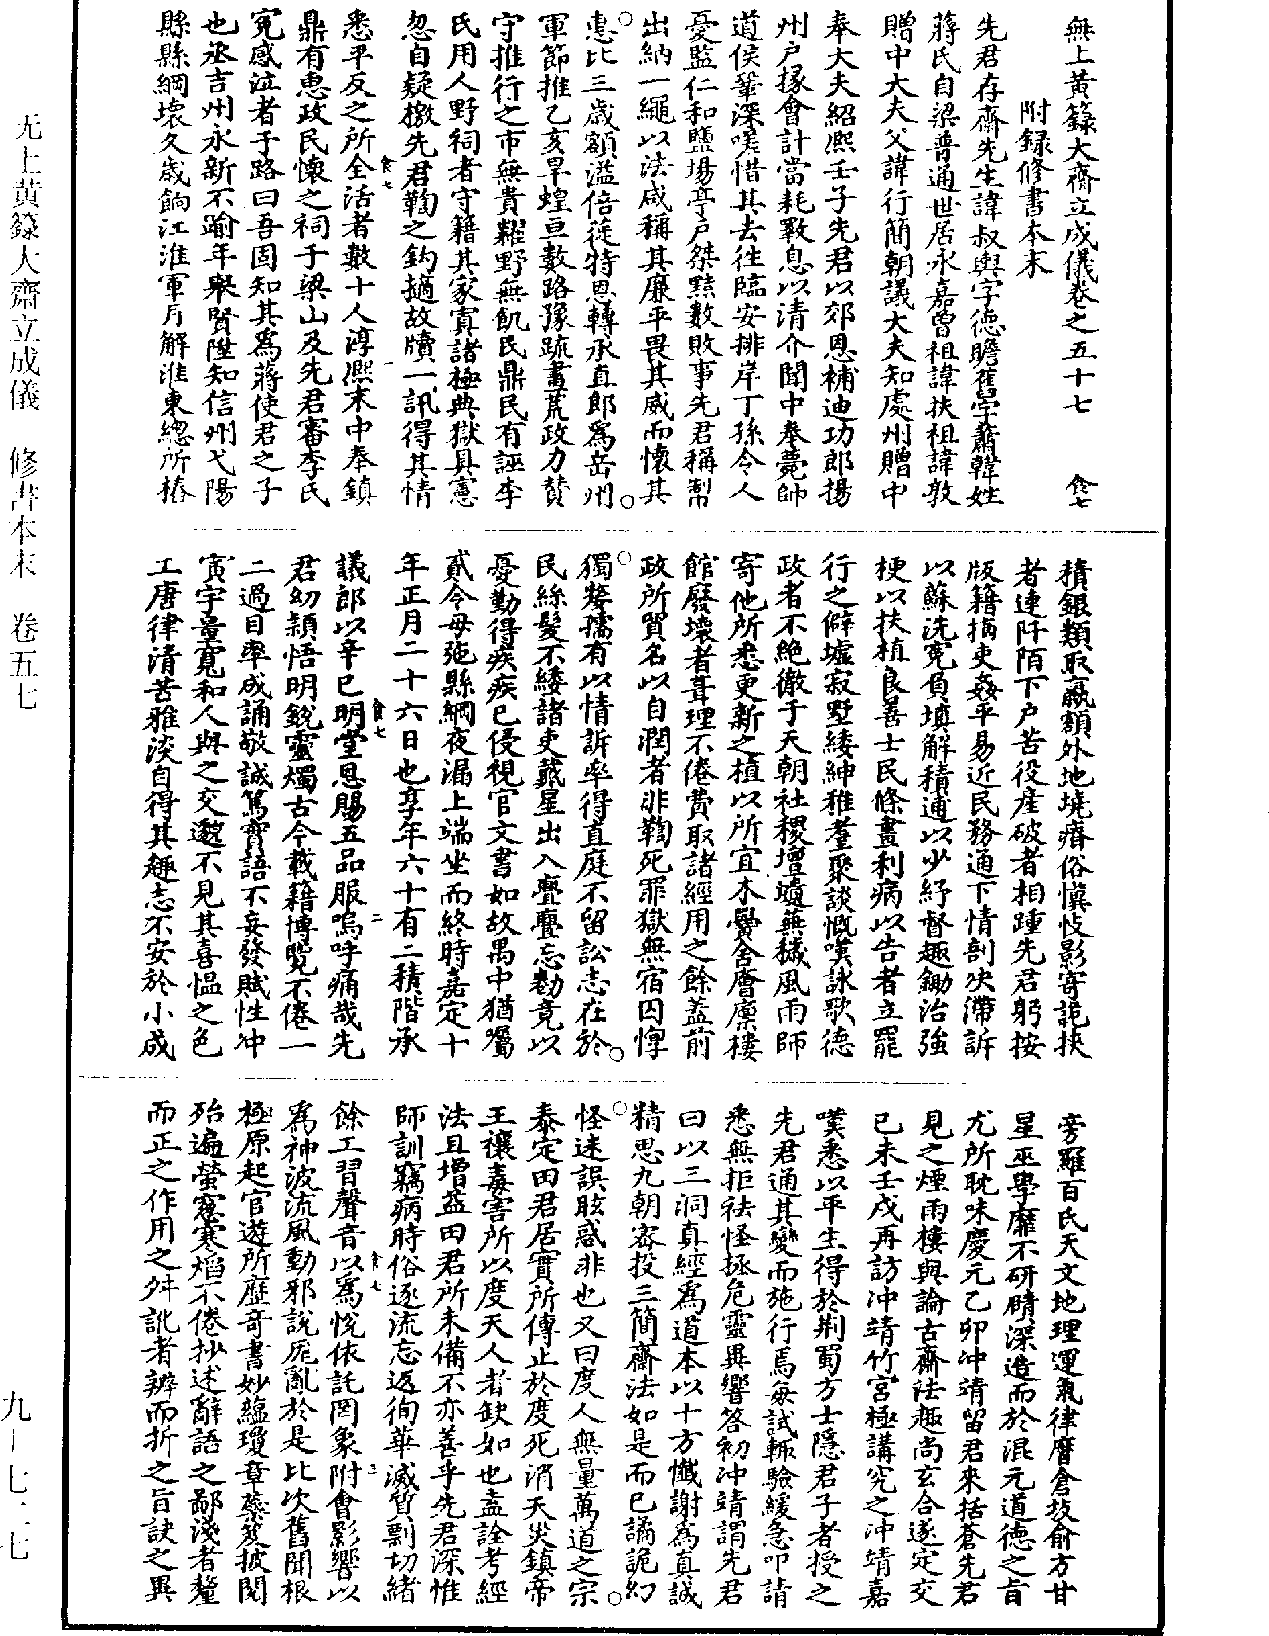 無上黃籙大齋立成儀卷之五十七　食七
附錄修書本末
先君存齋先生諱叔輿字德瞻舊學蕭韓姓
蔣氏自梁普通世居永嘉曾祖諱扶祖諱敦
贈中大夫父諱行簡朝議大夫知處州贈中
奉大夫紹熙壬子先君以郊恩補迪功郎揚
州戶掾會計當耗斁息以清介聞中奉薨帥
道侯輩深嗟惜其去往臨安排岸丁孫令人
憂監仁和鹽場亭戶桀黠數敗事先君稱製
出納一繩以法咸稱其廉平畏其威而懷其
惠比三歲額溢倍蓰特恩轉承直郎為岳州
軍節推乙亥旱蝗亘數路豫疏畫荒政力贊
守推行之市無貴糴野無飢民鼎民有誣李
氏用人野祠者守籍其家寘諸極典獄具憲
忽自疑檄先君鞫之鈎擿故牘一訊得其情
悉平反之所全活者數十人淳熙末中奉鎮
鼎有惠政民懷之祠于梁山及先君審李氏
冤感泣者于路曰吾固知其為蔣使君之子
也丞吉州永新不踰年舉賢陞知信州弋陽
縣縣綱壞久歲餉江淮軍月解淮東總所樁
積銀類取羸額外地墝瘠俗懻忮影寄詭挾
者連阡陌下戶苦役產破者相踵先君躬按
版籍擿吏姦平易近民務通下情剖決滯訴
以蘇洗冤負填解積逋以少紓督趣鋤治強
梗以扶植良善士民條畫利病以告者立罷
行之僻墟寂墅緌紳稚耋聚談慨嘆詠歌德
政者不絕徹于天朝社稷壇壝蕪穢風雨師
寄他所悉更新之植以所宜木黌舍廥廩樓
館廢壞者葺理不倦費取諸經用之餘蓋前
政所貿名以自潤者非鞫死罪獄無宿囚惸
獨嫠孺有以情訴率得直庭不留訟志在於
民絲髮不緌諸吏戴星出入亹亹忘勌竟以
憂勤得疾疾已侵視官文書如故禺中猶囑
貳令毋弛縣綱夜漏上端坐而終時嘉定十
年正月二十六日也享年六十有二積階承
議郎以辛巳明堂恩賜五品服嗚呼痛哉先
君幼穎悟明銳靈燭古今載籍博覽不倦一
二過目率成誦敬誠篤實語不妄發賦性冲
寅宇量寬和人與之交邈不見其喜慍之色
工唐律清苦雅淡自得其趣志不安於小成
旁羅百氏天文地理運氣律曆倉扁俞方甘
星巫學靡不研賾深造而於混元道德之旨
尤所耽味慶元乙卯冲靖留君來括蒼先君
見之煙雨樓與論古齋法趣尚玄合遂定交
己未壬戌再訪冲靖竹宮極講究之冲靖嘉
嘆悉以平生得於荊蜀方士隱君子者授之
先君通其變而施行焉每試輒驗緩急叩請
悉無拒祛怪拯危靈異響答初冲靖謂先君
曰以三洞真經為道本以十方懺謝為真誠
精思九朝密投三簡齋法如是而已譎詭幻
怪迷誤眩惑非也又曰度人無量萬道之宗
泰定田君居實所傳止於度死消天災鎮帝
王禳毒害所以度天人者缺如也盍詮考經
法且增益田君所未備不亦善乎先君深惟
師訓竊病時俗逐流忘返徇華滅質剽切緒
餘工習聲音以為悅依託罔象附會影響以
為神波流風動邪說厖亂於是比次舊聞根
極原起官遊所歷奇書妙蘊瓊章蘂笈披閱
殆遍螢窻寒焰不倦抄述辭語之鄙淺者釐
而正之作用之舛訛者辨而折之旨訣之異
无上黄籙大齋立成儀　修書本末　卷五七
九—七二七